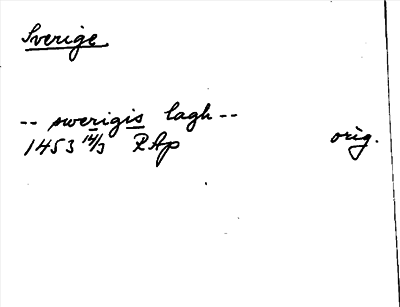 Sverige
-- swerigis lagh --
1453 14/3 RAp orig.